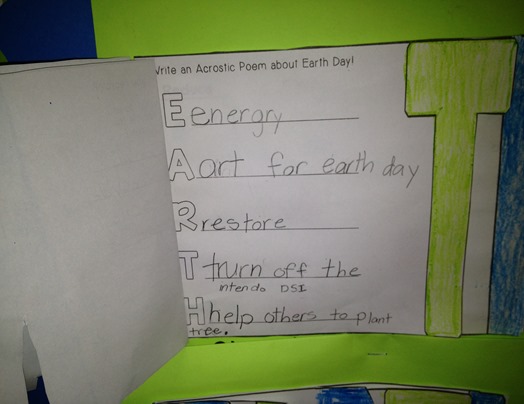 Write an Acrostic Poem about Earth Day!
E eenergry
A art for earth day
R restore
T trurn off the
intendo DSI
H help others to plant
tree.